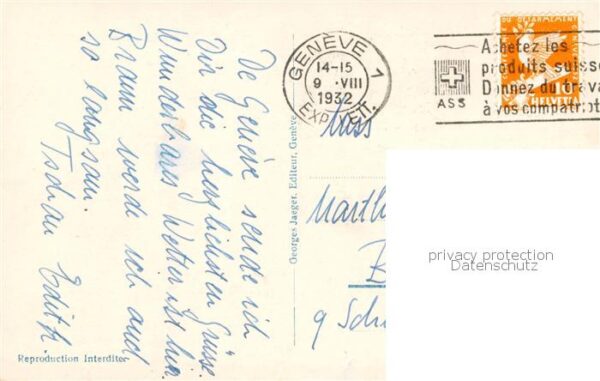 De Genève sende ich
Dir die herzlichsten Grüsse.
Wunderbares Wetter ist hier.
Braun werde ich auch
so langsam.
Tschau Edith.
Reproduction Interdite
Georges Jaeger, Editeur, Genève
GENÈVE 1
14-15
9 · VIII
1932
EXP. LETT.
DU DÉSARMEMENT
10
HELVETIA
Achetez les
produits suisse
Donnez du trava
à vos compatriot
ASS
Miss
Marth
B
9 Sch
privacy protection
Datenschutz